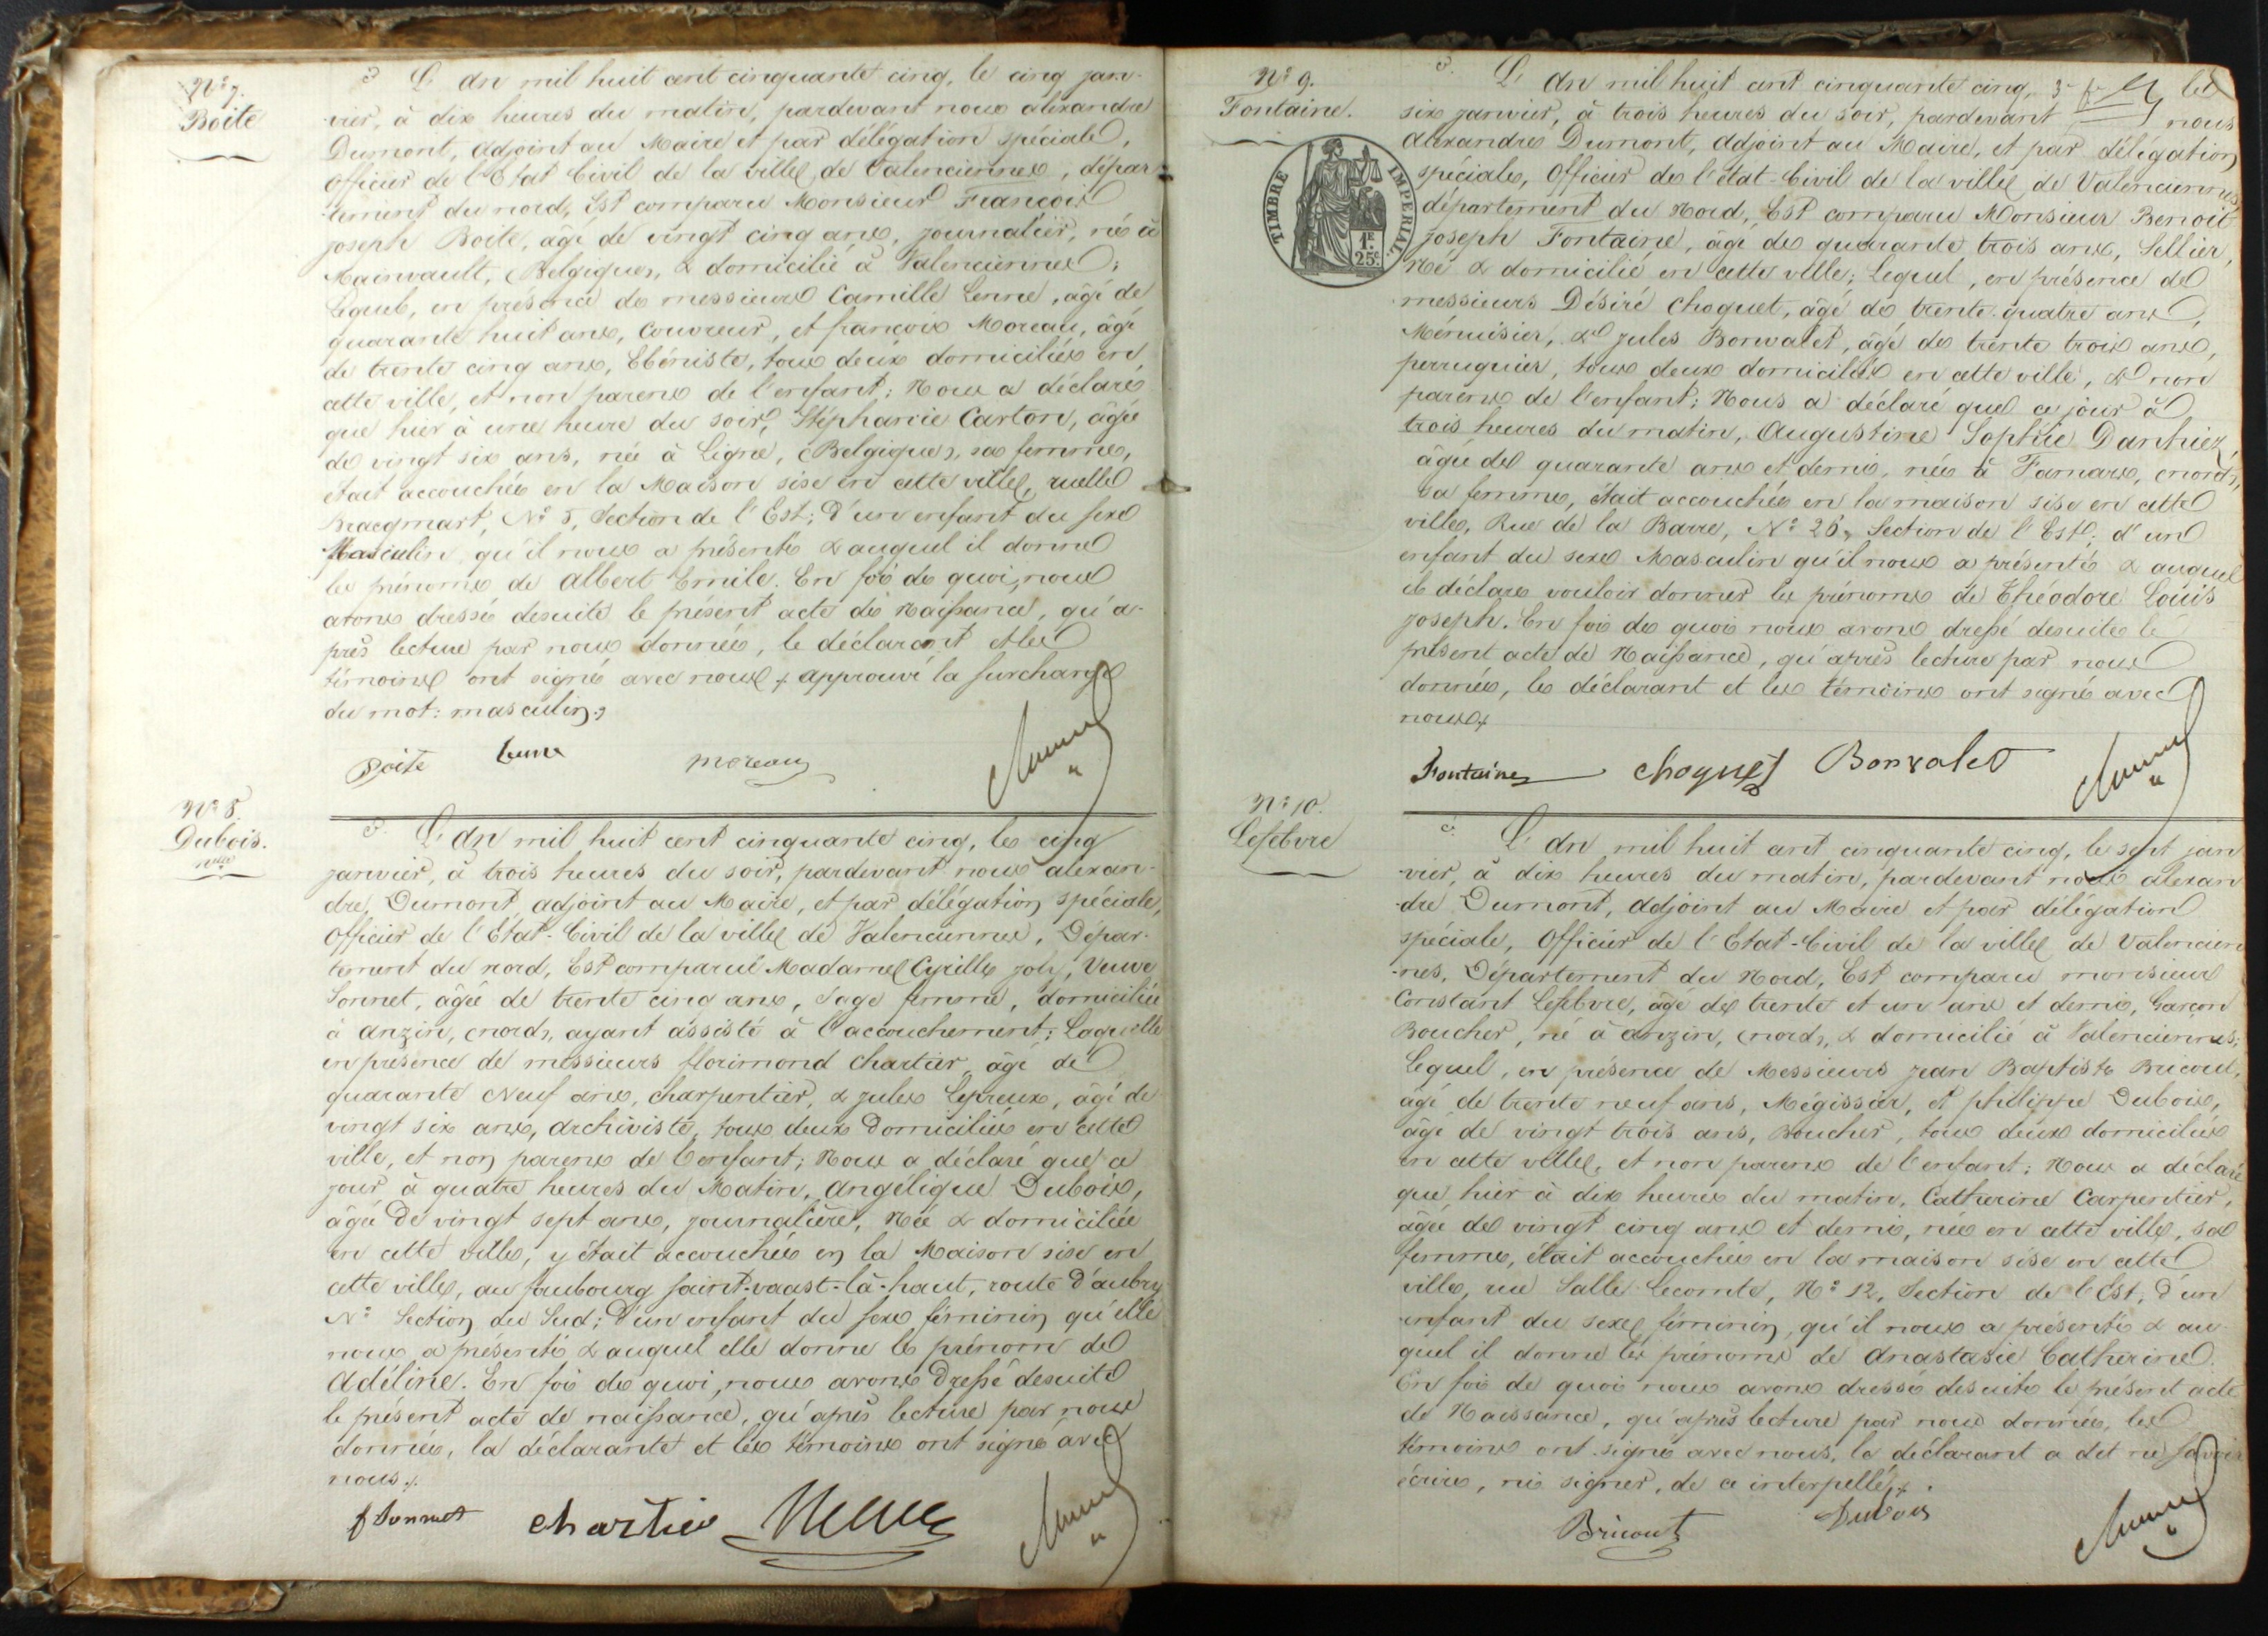 N° 7.
Boite
L'An mil huit cent cinquante cinq, le cinq jan-
vier, à dix heures du matin, pardevant nous alexandre
Dumont, Adjoint au Maire et par délégation spéciale,
Officier de l'État Civil de la ville de Valenciennes, dépar-
tement du nord, Est comparu Monsieur François
joseph Boite, âgé de vingt cinq ans, journalier, né à
Mainvault, (Belgique), & domicilié à Valenciennes;
Lequel, en présence de messieurs Camille Lenne, âgé de
quarante huit ans, Couvreur, et françois Moreau, âgé
de trente cinq ans, Ebéniste, tous deux domiciliés en
cette ville, et non parens de l'enfant; Nous a déclaré
que hier à une heure du soir, Stéphanie Carton, âgée
de vingt six ans, née à Ligne, (Belgique), sa femme,
était accouchée en la Maison sise en cette ville, ruelle
Bracqmart, N° 5, Section de l'Est; D'un enfant du sexe
Masculin qu'il nous a présenté & auquel il donne
les prénoms de Albert Emile. En foi de quoi, nous
avons dressé desuite le présent acte de Naissance, qu'a-
près lecture par nous donnée, le déclarant et les
témoins ont signé avec nous + approuvé la surcharge
du mot: masculin.
Boite Lenne moreau
N° 8.
Dubois.
L'An mil huit cent cinquante cinq, le cinq
janvier, à trois heures du soir, pardevant nous alexan-
dre Dumont, adjoint au Maire, et par délégation spéciale,
Officier de l'État-Civil de la ville de Valenciennes, Dépar-
tement du nord, Est comparue Madame Cyrille joly, Veuve
Sonnet, âgée de trente cinq ans, Sage femme, domiciliée
à anzin, (nord), ayant assisté à l'accouchement; Laquelle
en présence de messieurs florimond Chartier, âgé de
quarante Neuf ans, charpentier, & jules Lepreux, âgé de
vingt six ans, Archiviste, tous deux Domiciliés en cette
ville, et non parens de l'enfant; Nous a déclaré que ce
jour à quatre heures du Matin, Angélique Dubois,
âgée De vingt sept ans, journalière, Née & domiciliée
en cette ville, y était accouchée en la Maison sise en
cette ville, au faubourg saint-vaast-là-haut, route d'aubry
N° Section du Sud; D'un enfant du sexe féminin qu'elle
nous a présenté & auquel elle donne le prénom de
Adéline. En foi de quoi, nous avons Dressé desuite
le présent acte de naissance, qu'après lecture par nous
donnée, la déclarante et les témoins ont signé avec
nous.
Sonnet Chartier
N° 9.
Fontaine.
TIMBRE IMPERIAL
1F. 25c.
L'An mil huit cent cinquante cinq, le
six janvier, à trois heures du soir, pardevant nous
Alexandre Dumont, Adjoint au Maire, et par délégation
spéciale, Officier de l'état-Civil de la ville de Valenciennes,
département du Nord, Est comparu Monsieur Benoit
joseph Fontaine, âgé de quarante trois ans, Sellier,
Né & domicilié en cette ville; Lequel, en présence de
messieurs Désiré Choquet, âgé de trente quatre ans,
Ménuisier, & jules Bonvalet, âgé de trente trois ans,
perruquier, tous deux domiciliés en cette ville, & non
parens de l'enfant; Nous a déclaré que ce jour à
trois heures du matin, Augustine Sophie Danhiez,
âgée de quarante ans et demi, née à Famars, (nord),
sa femme, était accouchée en la maison sise en cette
ville, Rue de la Barre, N° 26, Section de l'Est; d'un
enfant du sexe Masculin qu'il nous a présenté & auquel
il déclare vouloir donner les prénoms de Théodore Louis
joseph. En foi de quoi nous avons dressé desuite le
présent acte de Naissance, qu'après lecture par nous
donnée, le déclarant et les témoins ont signé avec
nous +
Fontaine Choquet Bonvalet
N° 10.
Lefebvre
L'An mil huit cent cinquante cinq, le sept jan
vier, à dix heures du matin, pardevant nous alexan
-dre Dumont, Adjoint au Maire et par délégation
spéciale, Officier de l'Etat-Civil de la ville de Valencien
-nes, Département du Nord, Est comparu monsieur
Constant Lefebvre, âgé de trente et un ans et demi, Garçon
Boucher, né à Anzin, (nord), & domicilié à Valenciennes;
Lequel, en présence de Messieurs jean Baptiste Bricout,
âgé de trente neuf ans, Mégissier, et philippe Dubois,
âgé de vingt trois ans, Boucher, tous deux domiciliés
en cette ville, et non parens de l'enfant; Nous a déclaré
que hier à dix heures du matin, Catherine Carpentier,
âgée de vingt cinq ans et demi, née en cette ville, sa
femme, était accouchée en la maison sise en cette
ville, rue Salle Lecomte, N° 12, Section de l'Est; D'un
enfant du sexe féminin, qu'il nous a présenté & au
quel il donne les prénoms de Anastasie Catherine.
En foi de quoi nous avons dressé desuite le présent acte
de Naissance, qu'après lecture par nous donnée, les
témoins ont signé avec nous, le déclarant a dit ne savoir
écrire, ni signer, de ce interpellé +.
Bricout Dubois